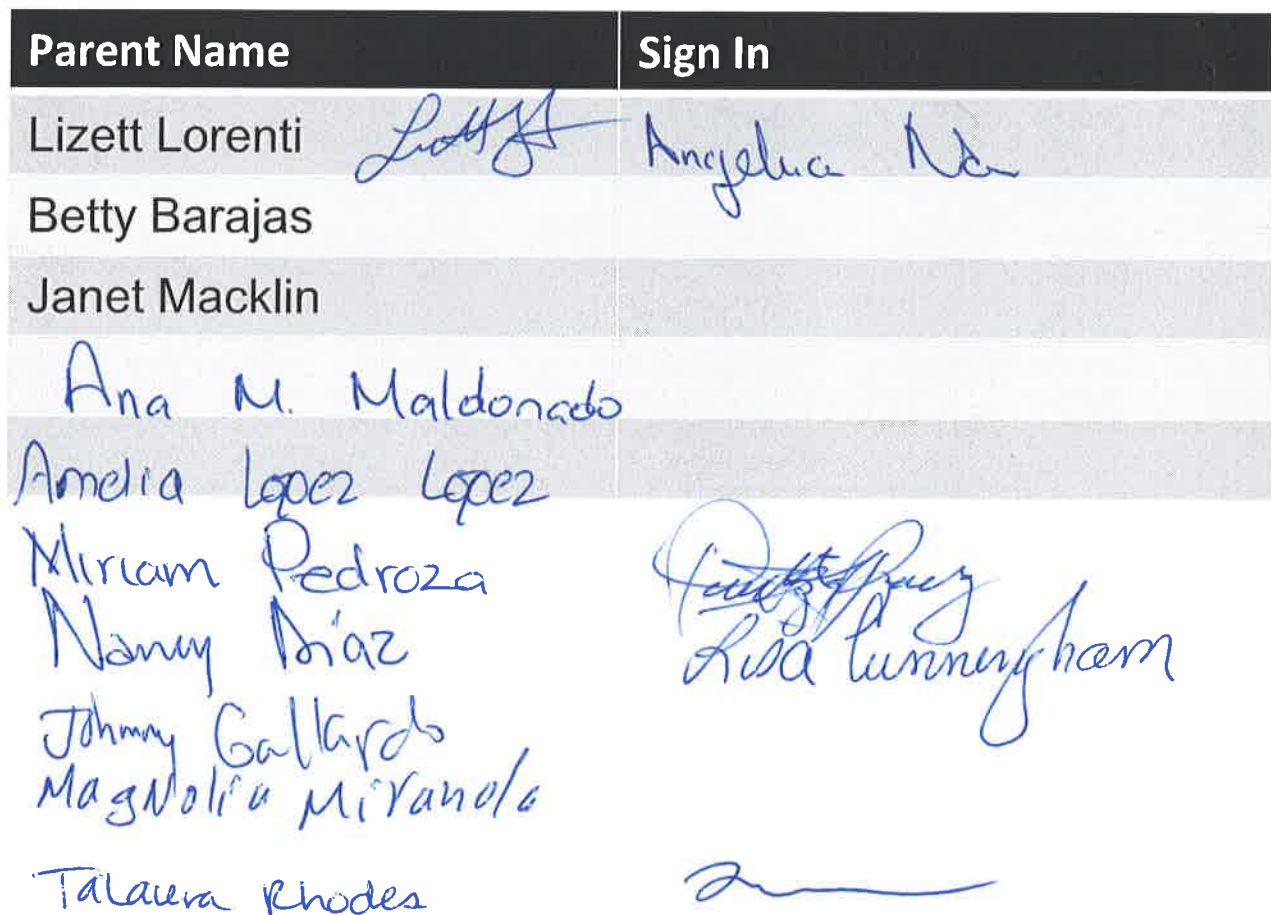 Parent Name Sign In
Lizett Lorenti Angelica
Betty Barajas
Janet Macklin
Ana M. Maldonado
Amelia Lopez Lopez
Miriam Pedroza
Nancy Díaz Lisa Cunningham
Johnny Gallardo
MagNolia Miranda
Talaura Rhodes